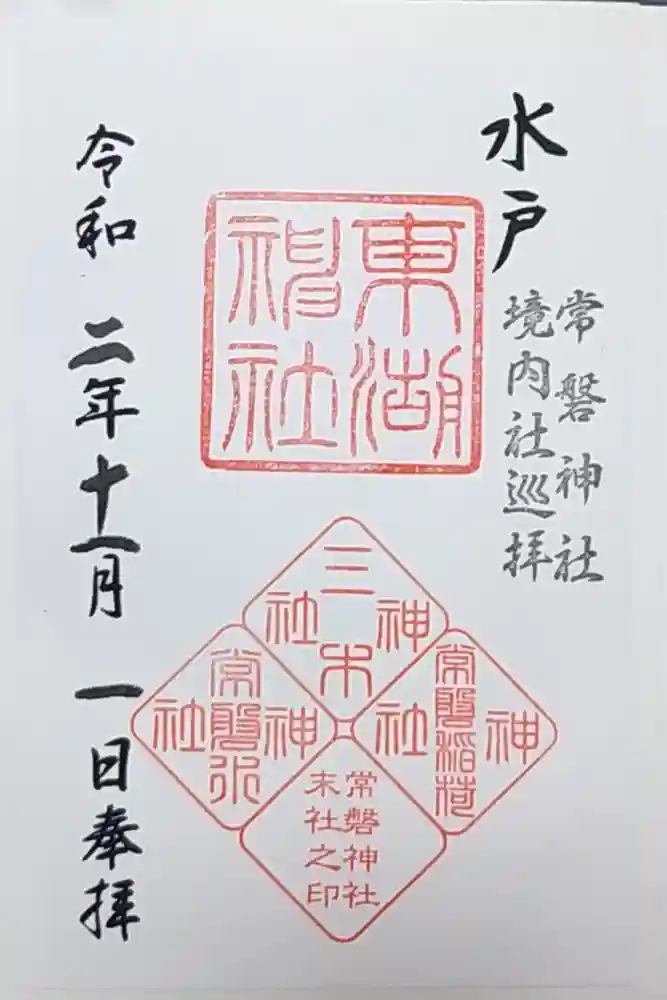 水戸
常磐神社
境内社巡拝
東湖
神社
三木
神社
常磐稲荷
神社
常磐水
神社
常磐神社
末社之印
令和二年十一月一日奉拝